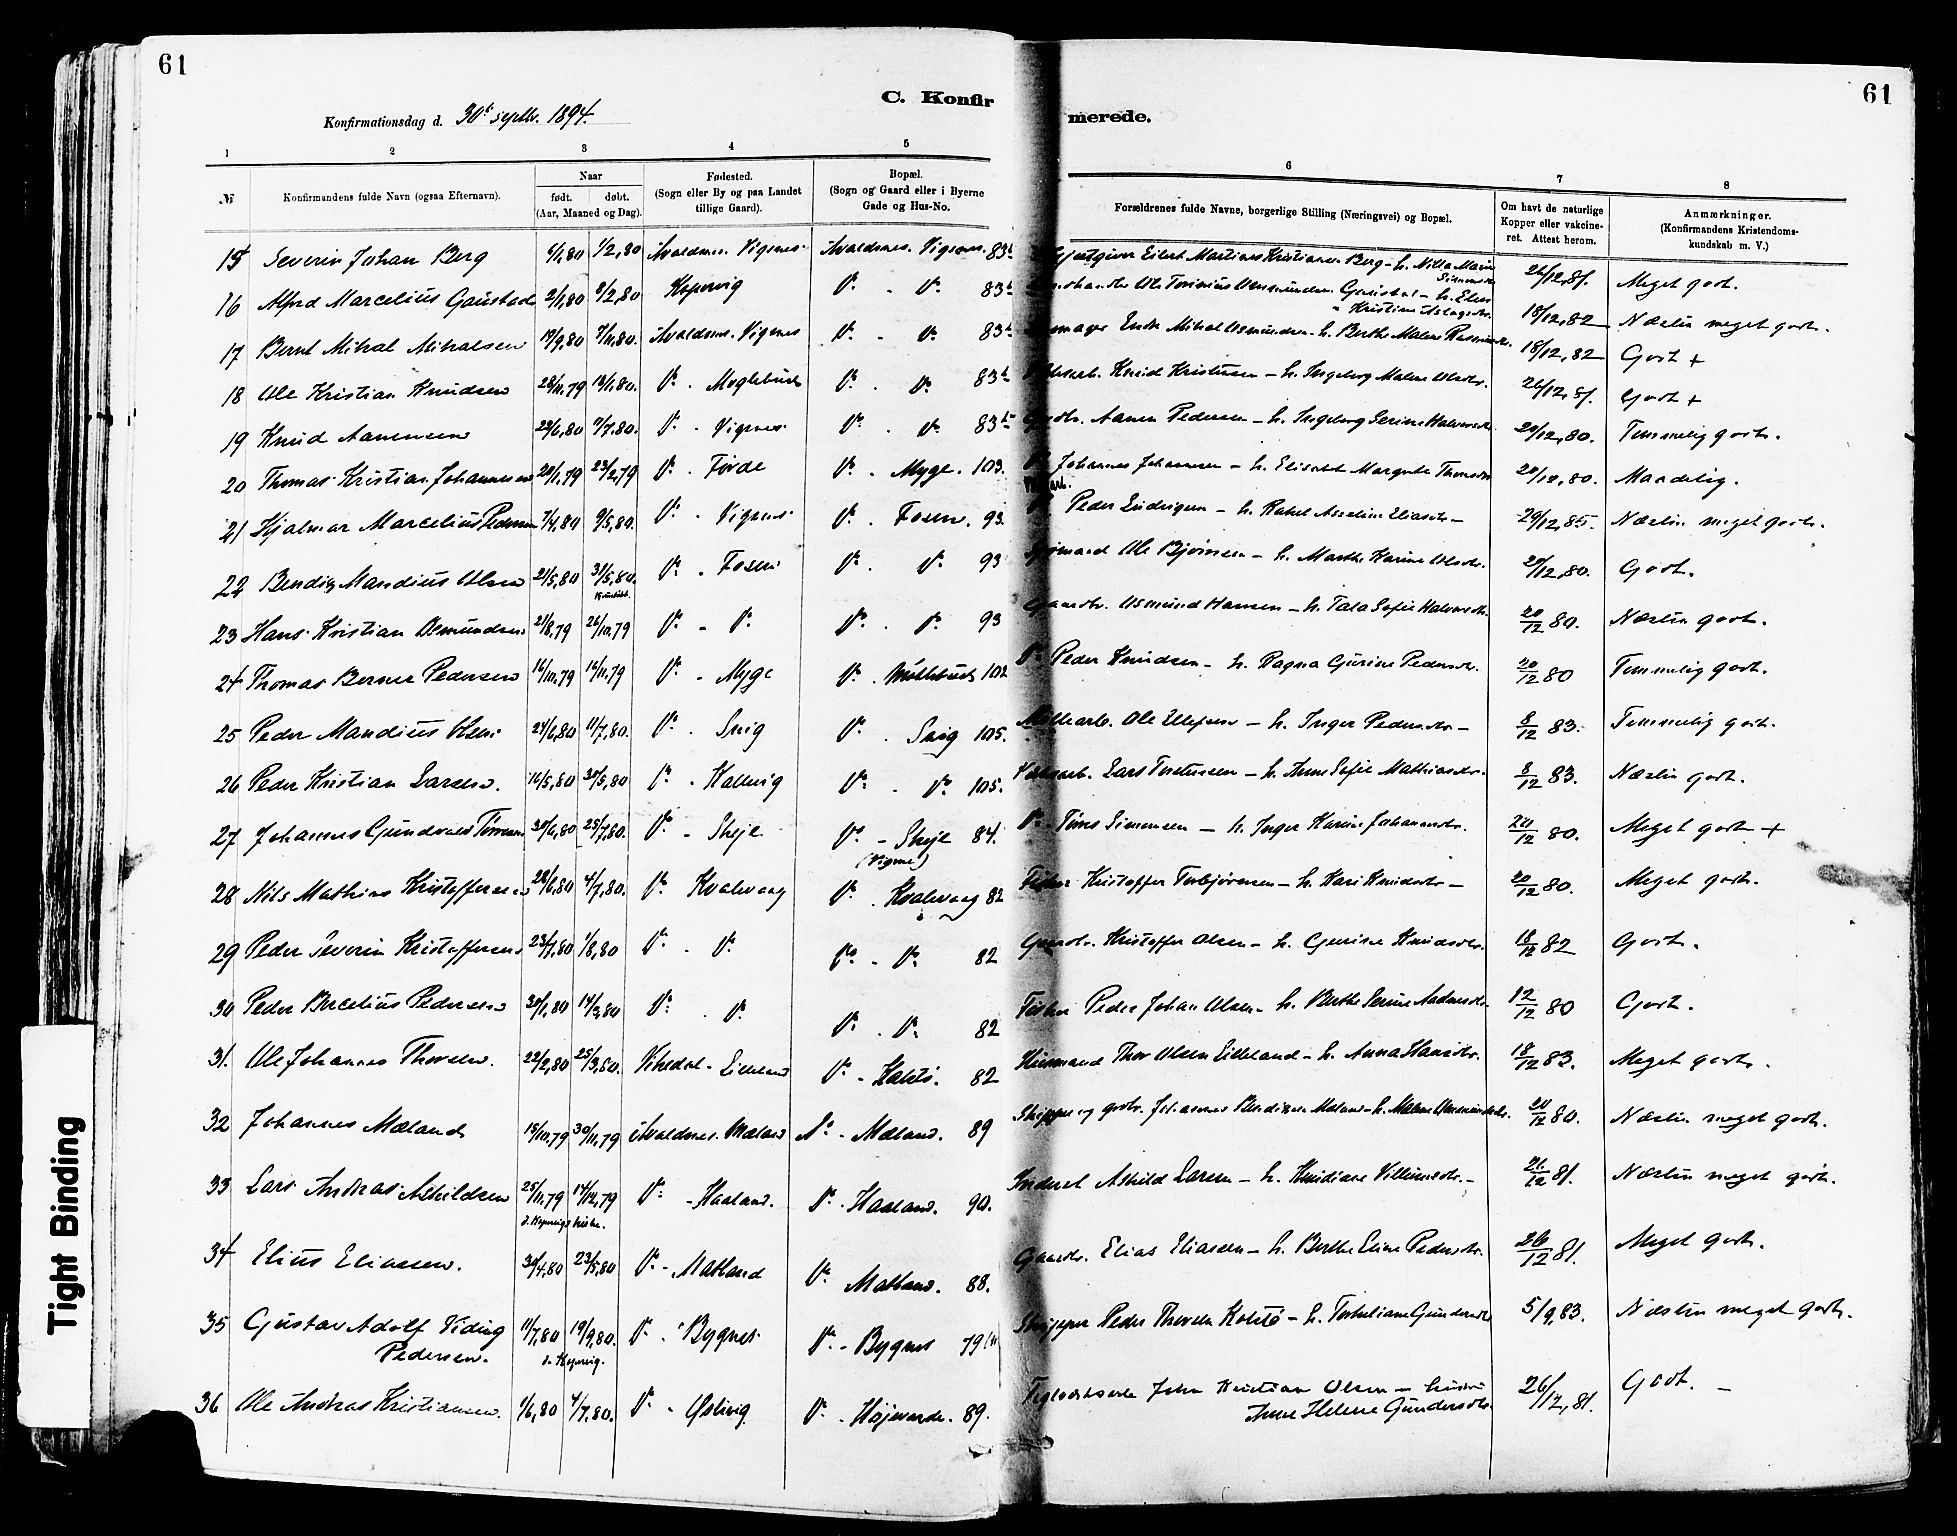 61
61
C. Konfirmerede.
Konfirmationsdag d. 30te septbr. 1894.
1 2 3 4 5 6 7 8
№ Konfirmandens fulde Navn (ogsaa Efternavn). Naar født. døbt. (Aar, Maaned og Dag). Fødested. (Sogn eller By og paa Landet tillige Gaard). Bopæl. (Sogn og Gaard eller i Byerne Gade og Hus-No. Forældrenes fulde Navne, borgerlige Stilling (Næringsvei) og Bopæl. Om havt de naturlige Kopper eller vakcineret. Attest herom. Anmærkninger. (Konfirmandens Kristendomskundskab m. V.)
15 Severin Johan Berg 6/1,80 1/2,80 Avaldsnes. Vigsnes Avaldsnes. Vigsnes. 83 Eilert Martinus Kristiansen Berg – h. Nilla Marie 26/12,81. Meget godt.
16 Alfred Marcelius Gaustad 2/1,80 8/2,80 Kopervig Do. - Do. 83 Ole Tonnius Osmundsen Gaustad – h. Elen Kristine Aslagsdtr. 18/12,82 Næsten meget godt.
17 Bernt Mikal Mikalsen 19/9,80 7/11,80. Avaldsnes. Vigsnes Do. - Do. 83 Endre Mikal Osmundsen – h. Berthe Malene 18/12,82 Godt +
18 Ole Kristian Knudsen 28/11,79 18/1,80. Do. - Møglebust Do. Do. 83 Knud Kristensen – h. Ingeborg Malene Olsdtr. 26/12,81. Godt +
19 Knud Aanensen 29/6,80 11/7,80. Do. - Vigsnes Do. - Do. 83 Aanen Pedersen – h. Ingeborg Serine Halvorsdtr. 20/12,80. Temmelig godt.
20 Thomas Kristian Johannessen 20/1,79 23/2,79 Do. - Førde Do. - Myge. 103. Johannes Johannesen – h. Elisabet Margrete Thomsdtr 20/12,80. Maadelig.
21 Hjalmar Marcelius Pedersen 7/4,80 9/5,80. Do. - Vigsnes Do. - Fosen. 93. Peder Ludvigsen – h. Rakel Asseline Eliasdtr – 29/12,85. Næsten meget godt.
22 Bendix Mandius Olsen 21/5,80 31/5,80. Do. - Fosen Do. - Do. 93 Ole Bjørnsen – h. Marthe Karine Olsdtr. 20/12,80. Godt.
23 Hans Kristian Osmundsen 21/8,79 26/10,79 Do. - Do. Do. - Do. 93 Gaardbr. Osmund Hansen – h. Tala Sofie Halvorsdtr. 20/12 80. Næsten godt.
24 Thomas Berner Pedersen 16/10,79 16/11,79 Do. - Myge Do. - Møklebust 102 Do. Peder Knudsen – h. Ragna Gurine Pedersdtr. 20/12 80 Temmelig godt.
25 Peder Mandius Olsen 24/6,80 11/7,80. Do. - Snig Do. - Snig 105. Ole Ellefsen – h. Inger Pedersdtr – 8/12 83. Temmelig godt.
26 Peder Kristian Larsen. 16/5,80 30/5,80 Do. - Kallevig Do. - Do. 105. Lars Torstensen – h. Anne Sofie Mathiasdtr. 8/12 83. Næsten godt.
27 Johannes Gundvald Tønnesen 30/6,80 25/7,80. Do. - Skeje Do. - Skeje 84. (Vigsnes) Do. Tønnes Simonsen – h. Inger Karine Johannesdtr. 20/12 80. Meget godt +
28 Nils Mathias Kristoffersen 28/6,80 4/7,80. Do. Kvalevaag Do. - Kvalevaag 82 Fisker Kristoffer Torbjørnsen – h. Kari Knudsdtr – 20/12 80. Meget godt.
29 Peder Severin Kristoffersen 23/7,80 1/8,80 Do. - Do. Do. - Do. 82 Gaardbr. Kristoffer Olsen – h. Gurine Knudsdtr. 18/12 82 Godt.
30 Peder Bercelius Pedersen 30/1,80 14/3,80 Do. - Do. Do. - Do. 82 Fisker Peder Johan Olsen – h. Berthe Serine Andersdtr. 12/12 80 Godt.
31. Ole Johannes Thorsen. 22/2,80 25/3,80. Vikedal - Lilleland Do. - Kalstø. 82 Husmand Thor Olsen Lilleland – h. Anna Hansdtr. 18/12 83. Meget godt.
32 Johannes Mæland 15/10,79 30/11,79 Avaldsnes. Mæland Do. - Mæland. 89 Skipper og grdbr. Johannes Bendixen Mæland – h. Malene Osmundsdtr. 20/12 80. Næsten meget godt.
33 Lars Andreas Askildsen 25/11,79 14/12,79 d. Kopervig kirke. Do. - Haaland. Do. - Haaland. 90. Inderst Askild Larsen – h. Knudiane Villumsdtr. – 26/12 81. Næsten meget godt.
34 Elius Eliassen. 30/4,80 23/5,80 Do. - Matland Do. Matland. 88. Gaardbr. Elias Eliassen – h. Berthe Elene Pedersdtr. 26/12 81. Meget godt.
35 Gustav Adolf Viding Pedersen. 11/7,80 19/9,80. d. Kopervig. Do. - Bygnes Do. - Bygnes 79 Skipper Peder Thorsen Kolstø – h. Torheliane Gundersdtr 5/9,83. Næsten meget godt.
36 Ole Andreas Kristiansen. 1/6,80 4/7,80. Do. - Østevig Do. - Højevarde. 89. John Kristian Olsen – hustru Anne Helene Gundersdtr. 26/12,81. Godt. –
Tight Binding